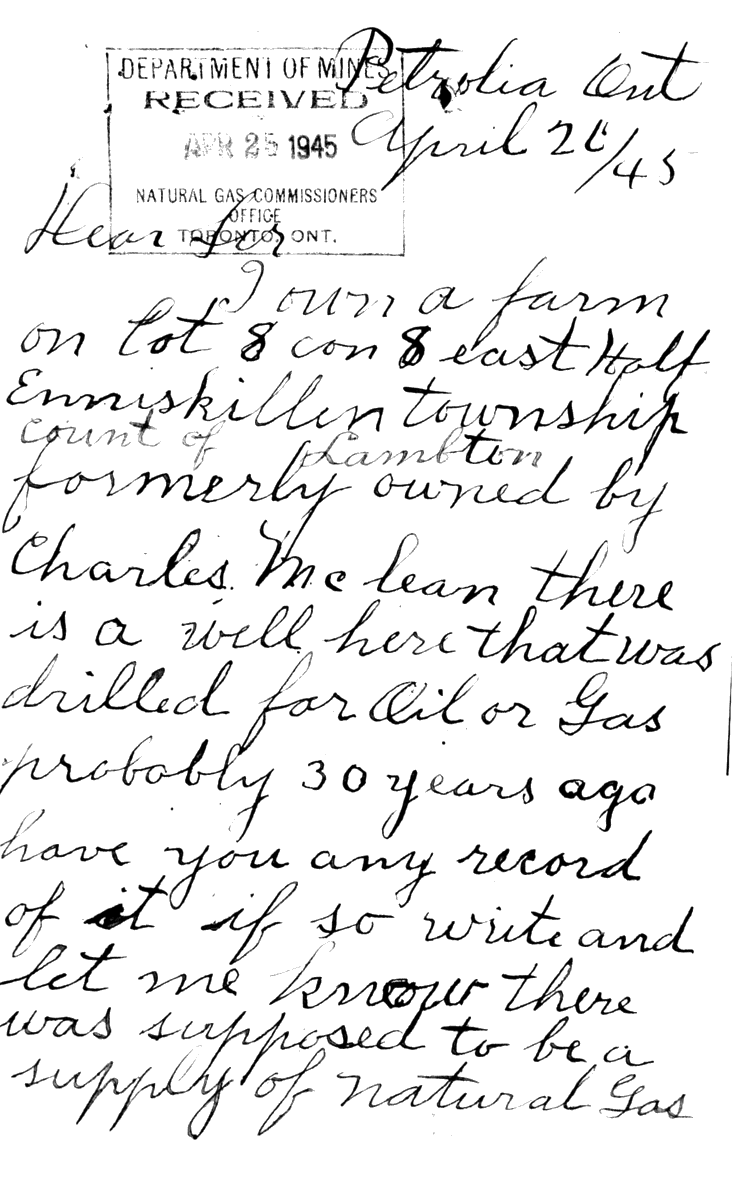 DEPARTMENT OF MINES
RECEIVED
APR 25 1945
NATURAL GAS COMMISSIONERS
OFFICE
TORONTO, ONT.
Petrolia Ont
April 21/45
Dear Sir
I own a farm
on lot 8 con 8 east Half
Enniskillen township
count of Lambton
formerly owned by
Charles Mc lean there
is a well here that was
drilled for Oil or Gas
probably 30 years ago
have you any record
of it if so write and
let me know there
was supposed to be a
supply of natural Gas